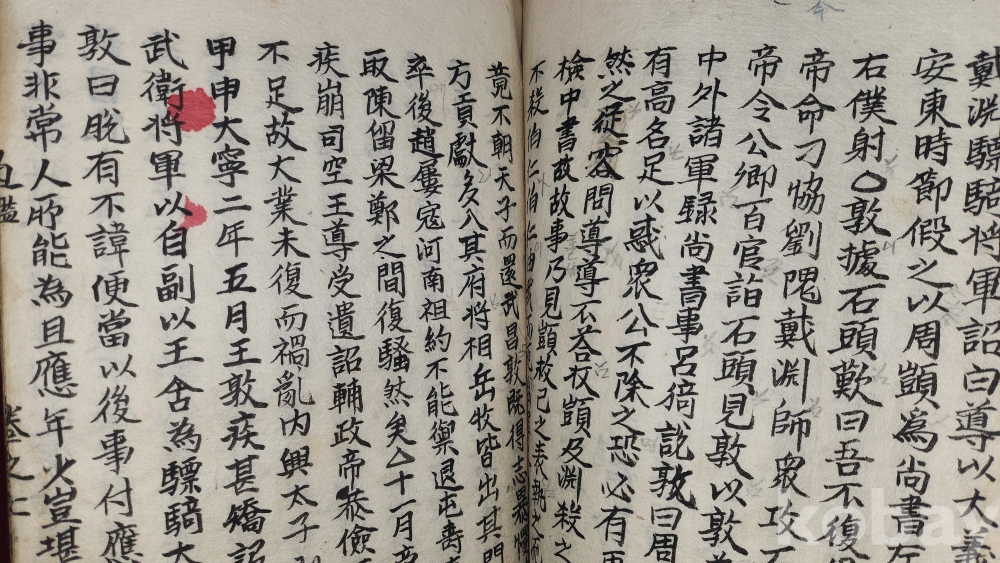 戴淵驃騎將軍詔曰導以大義
安東時節假之以周顗爲尚書左
右僕射○敦據石頭歎曰吾不復得
帝命刁恊劉隗戴淵師衆攻石
帝令公卿百官詣石頭見敦以敦爲
中外諸軍録尚書事呂猗說敦曰周
有高名足以惑衆公不除之恐必有再
然之從容問導導不荅扵顗及淵殺之
檢中書故故事乃見顗救己之表執之
不殺伯仁伯仁由
竟不朝天子而還武昌敦既得志暴慢
方貢獻多入其府將相岳牧皆出其門
卒後趙屢寇河南祖約不能禦退屯壽
取陳留梁鄭之間復騷然矣△十一月帝
疾崩司空王導受遺詔輔政帝恭儉
不足故大業未復而禍亂内興太子
甲申大寧二年五月王敦疾甚矯詔
武衛將軍以自副以王舍為驃騎大
敦曰脱有不諱便當以後事付應
事非常人所能為且應年火豈堪
卷之七
kobay